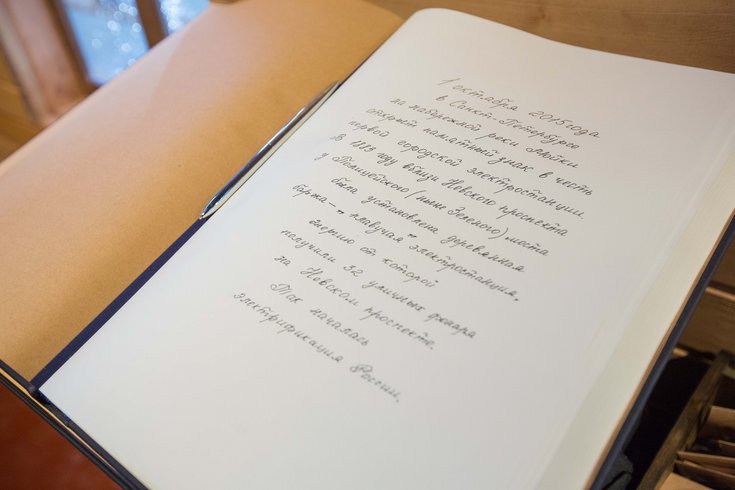 1 октября 2015 года
в Санкт-Петербурге
на набережной реки Мойки
открыт памятный знак в честь
первой городской электростанции.
В 1883 году вблизи Невского проспекта
у Полицейского (ныне Зеленого) моста
была установлена деревянная
баржа-"плавучая" электростанция,
энергию от которой
получили 32 уличных фонаря
на Невском проспекте.
Так началась
электрификация России.